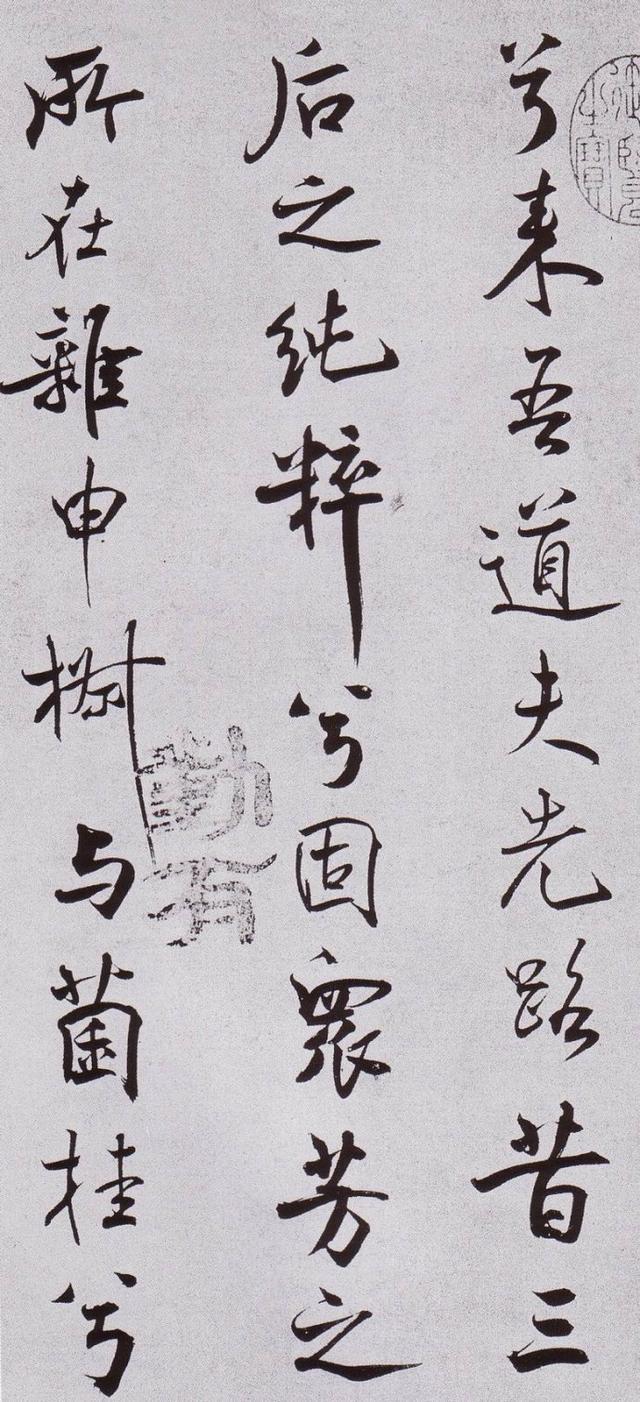 兮来吾道夫先路昔三
后之純粹兮固衆芳之
所在雜申椒与菌桂兮
勤有